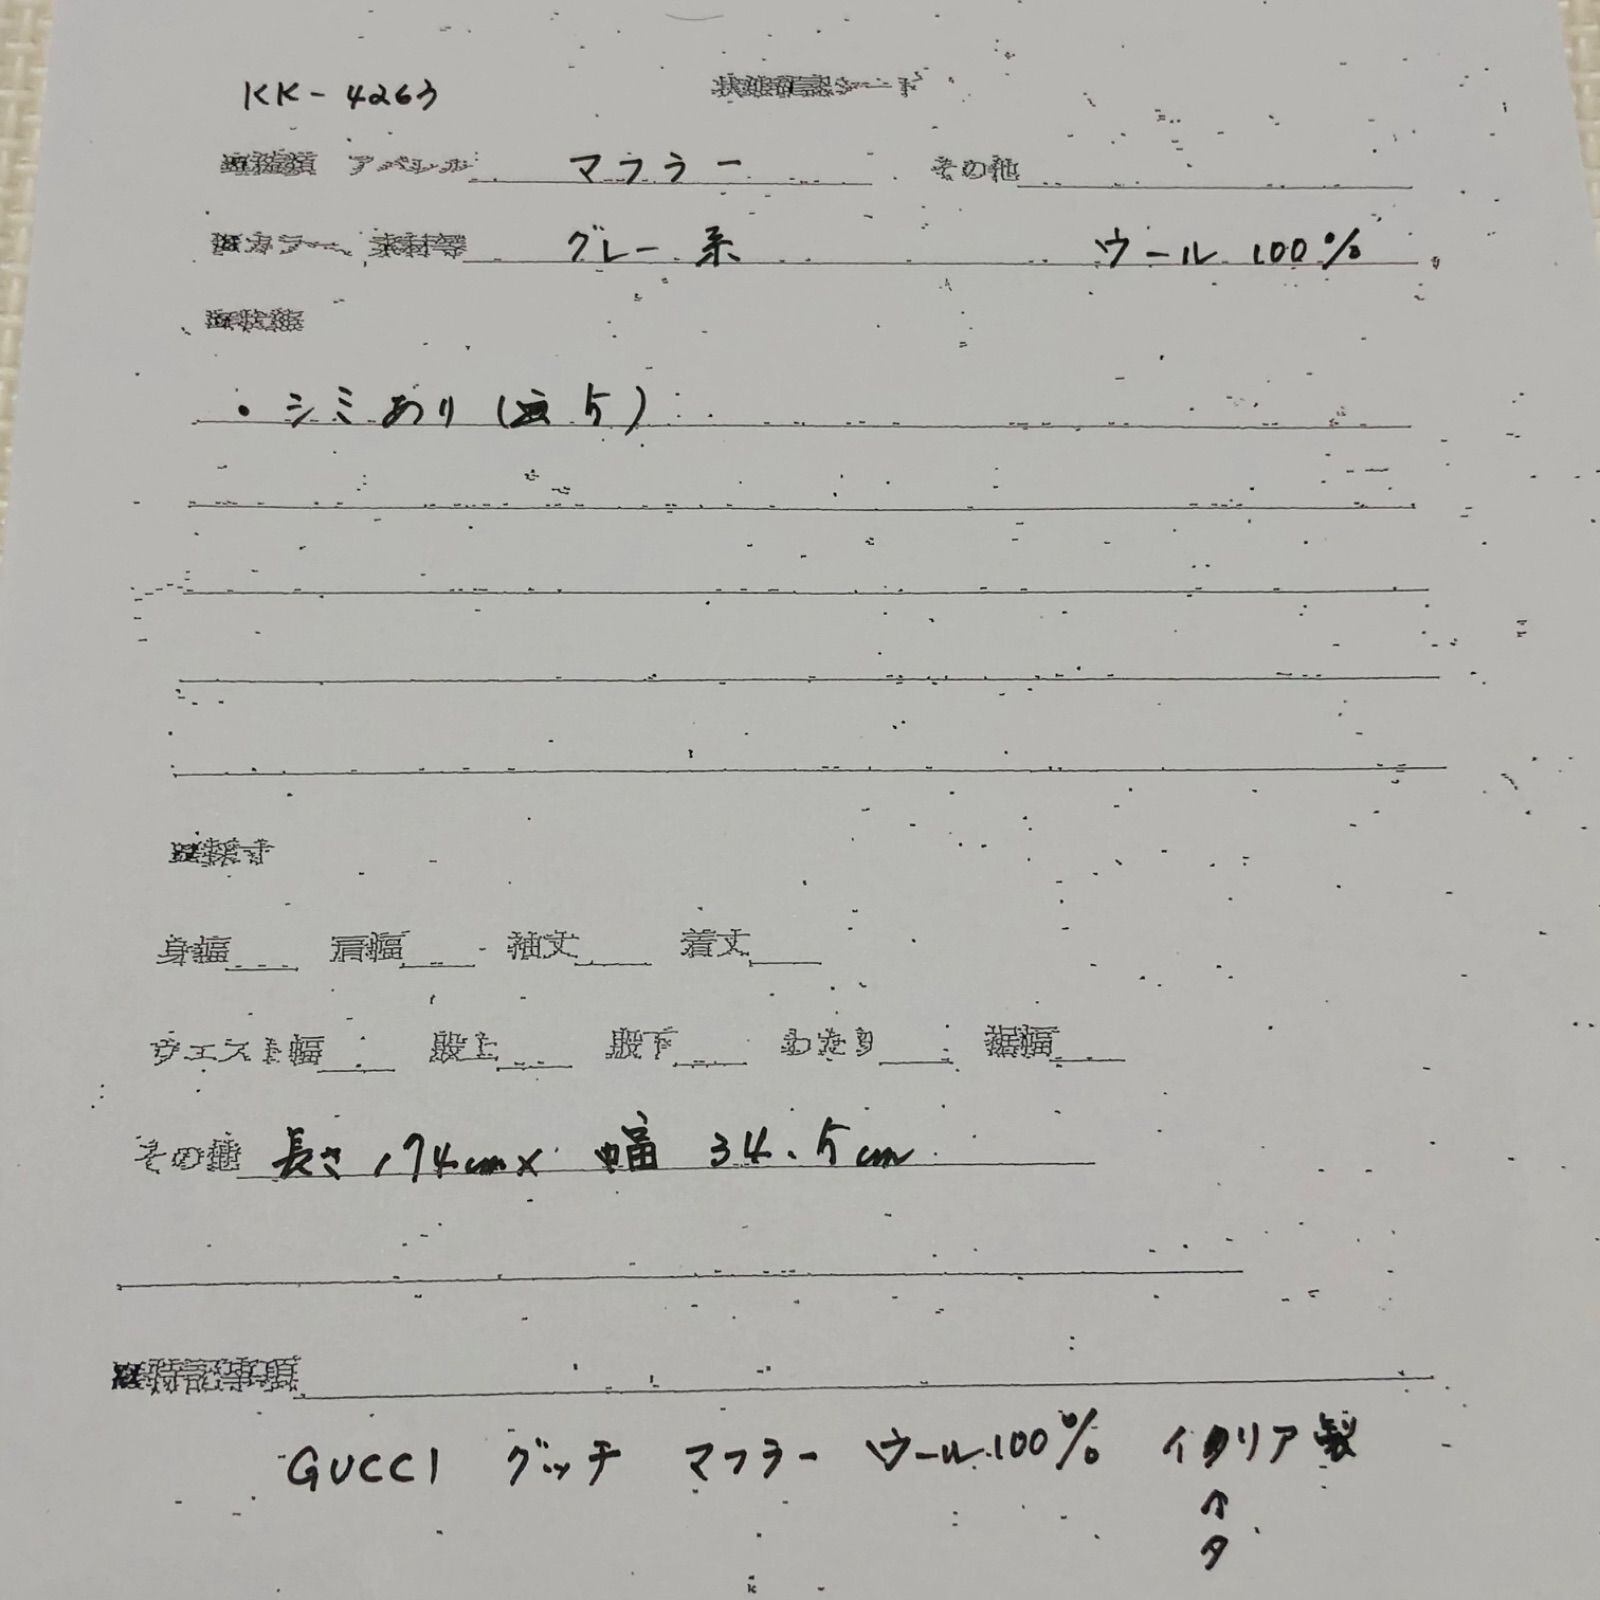 KK-4263 状態確認シート
■種類 アパレル マフラー その他
■カラー、素材等 グレー系 ウール 100%
■状態
・シミあり(5)
■採寸
身幅 肩幅 袖丈 着丈
ウエスト幅 股上 股下 わたり 裾幅
その他 長さ 174cm× 幅 34.5cm
■特記事項
GUCCI グッチ マフラー ウール100% イタリア製
↑
タ